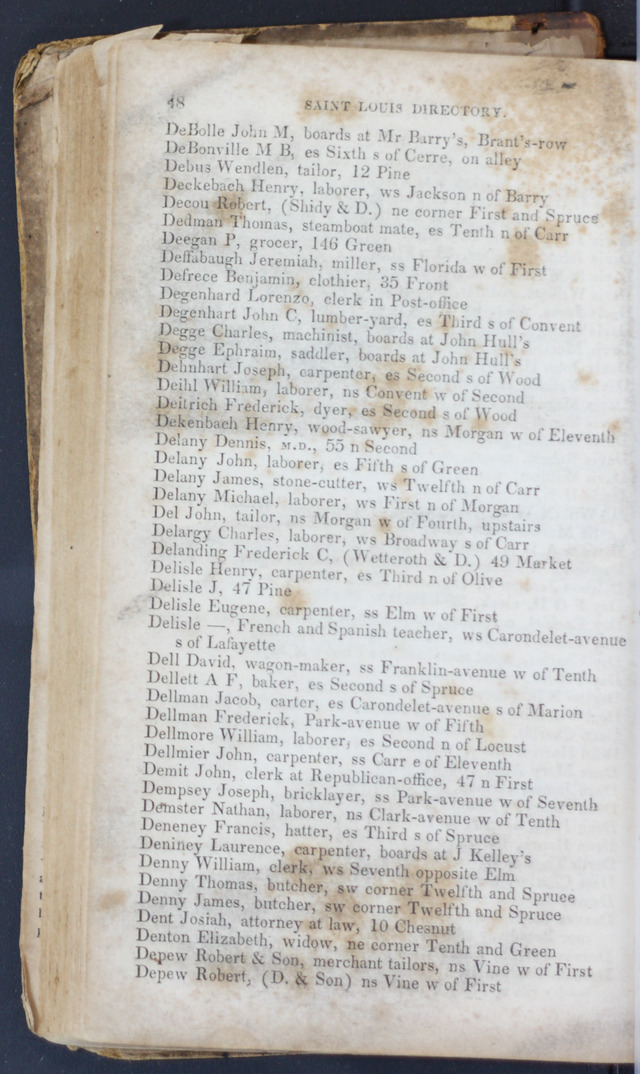 48 SAINT LOUIS DIRECTORY.
DeBolle John M, boards at Mr Barry's, Brant's-row
DeBonville M B, es Sixth s of Cerre, on alley
Debus Wendlen, tailor, 12 Pine
Deckebach Henry, laborer, ws Jackson n of Barry
Decou Robert, (Shidy & D.) ne corner First and Spruce
Dedman Thomas, steamboat mate, es Tenth n of Carr
Deegan P, grocer, 146 Green
Deffabaugh Jeremiah, miller, ss Florida w of First
Defrece Benjamin, clothier, 35 Front
Degenhard Lorenzo, clerk in Post-office
Degenhart John C, lumber-yard, es Third s of Convent
Degge Charles, machinist, boards at John Hull's
Degge Ephraim, saddler, boards at John Hull's
Dehnhart Joseph, carpenter, es Second s of Wood
Deihl William, laborer, ns Convent w of Second
Deitrich Frederick, dyer, es Second s of Wood
Dekenbach Henry, wood-sawyer, ns Morgan w of Eleventh
Delany Dennis, M.D., 55 n Second
Delany John, laborer, es Fifth s of Green
Delany James, stone-cutter, ws Twelfth n of Carr
Delany Michael, laborer, ws First n of Morgan
Del John, tailor, ns Morgan w of Fourth, upstairs
Delargy Charles, laborer, ws Broadway s of Carr
Delanding Frederick C, (Wetteroth & D.) 49 Market
Delisle Henry, carpenter, es Third n of Olive
Delisle J, 47 Pine
Delisle Eugene, carpenter, ss Elm w of First
Delisle —, French and Spanish teacher, ws Carondelet-avenue
s of Lafayette
Dell David, wagon-maker, ss Franklin-avenue w of Tenth
Dellett A F, baker, es Second s of Spruce
Dellman Jacob, carter, es Carondelet-avenue s of Marion
Dellman Frederick, Park-avenue w of Fifth
Dellmore William, laborer, es Second n of Locust
Dellmier John, carpenter, ss Carr e of Eleventh
Demit John, clerk at Republican-office, 47 n First
Dempsey Joseph, bricklayer, ss Park-avenue w of Seventh
Demster Nathan, laborer, ns Clark-avenue w of Tenth
Deneney Francis, hatter, es Third s of Spruce
Deniney Laurence, carpenter, boards at J Kelley's
Denny William, clerk, ws Seventh opposite Elm
Denny Thomas, butcher, sw corner Twelfth and Spruce
Denny James, butcher, sw corner Twelfth and Spruce
Dent Josiah, attorney at law, 10 Chesnut
Denton Elizabeth, widow, ne corner Tenth and Green
Depew Robert & Son, merchant tailors, ns Vine w of First
Depew Robert, (D. & Son) ns Vine w of First